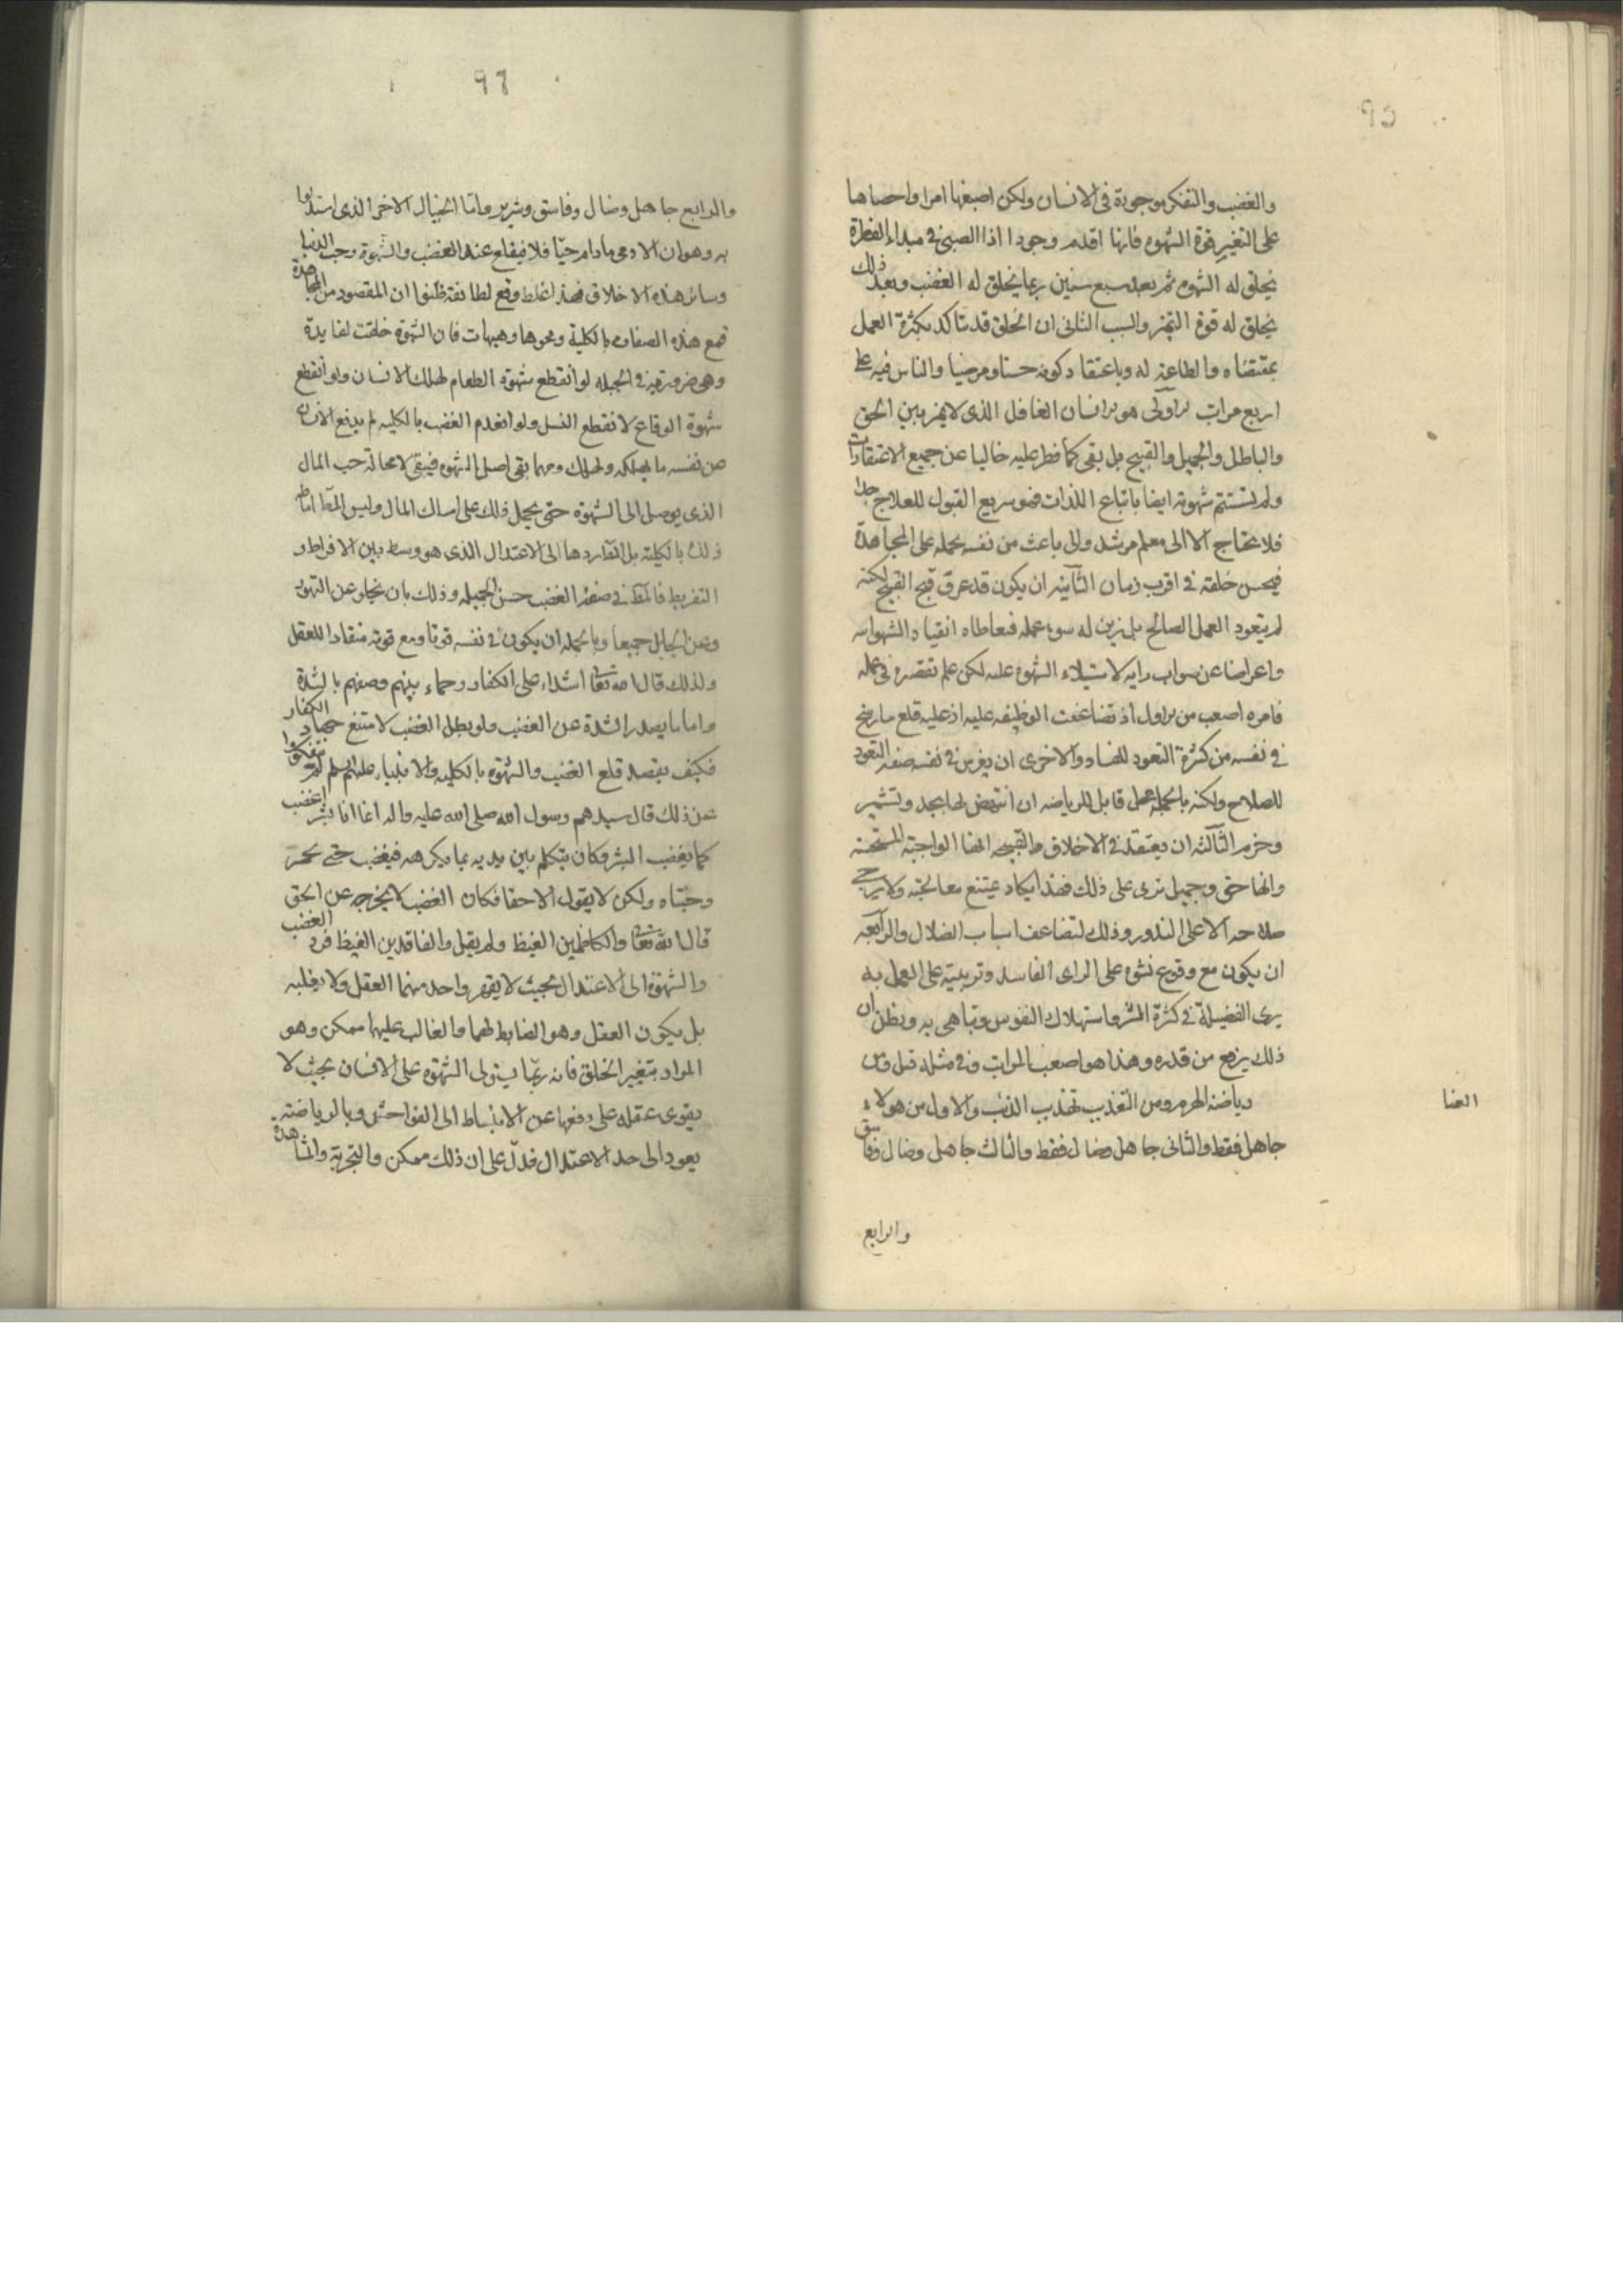 ٩٥
والغضب والتفكر موجودة فى الانسان ولكن اصبغها امرا واحصاها
على التغير قوة الشهوه فانها اقدم وجودا اذا الصبى فى مبداء الفطرة
يخلق له الشهوه ثم بعد سبع سنين ربما يخلق له الغضب وبعد ذلك
يخلق له قوة التميز والسبب الثانى ان الخلق قد يتاكد بكثرة العمل
بمقتضاه والطاعة له وباعتقاد كونه حسنا ومرضيا والناس فيه على
اربع مراتب الاولى هو الانسان الغافل الذى لا يميز بين الحق
والباطل والجميل والقبيح بل بقى كما فطر عليه خاليا عن جميع الاعتقادات
ولم تستتم شهوته ايضا باتباع اللذات فهو سريع القبول للعلاج جدا
فلا يحتاج الا الى معلم مرشد والى باعث من نفسه يحمله على المجاهدة
فيحسن خلقه فى اقرب زمان الثانيه ان يكون قد عرف قبح القبيح لكنه
لم يتعود العمل الصالح بل زين له سوء عمله فتعاطاه انقيادا لشهواته
واعراضا عن صواب رايه لاستيلاء الشهوه عليه لكن علم تقصيره فى عمله
فامره اصعب من الاول اذ تضاعفت الوظيفه عليه اذ عليه قلع ما رسخ
فى نفسه من كثرة التعود للفساد والاخرى ان يغرس فى نفسه صفه التعود
للصلاح ولكنه بالجمله محل قابل للرياضه ان انتهض لها بجد وتشمير
وحزم الثالثه ان يعتقد فى الاخلاق القبيحه انها الواجبة المستحسنه
وانها حق وجميل تربى على ذلك فهذا يكاد يمتنع معالجته ولا يرجى
صلاحه الا على الندور وذلك لتضاعف اسباب الضلال والرابعه
ان يكون مع وقوع نشوه على الراى الفاسد وتربيته على العمل به
يرى الفضيلة فى كثرة الشر واستهلاك النفوس وتباهى به ويظن ان
ذلك يرفع من قدره وهذا هو اصعب المراتب وفى مثله قيل ومن
العنا
رياضة الهرم ومن التعذيب تهذيب الذئب والاول من هولاء
جاهل فقط والثانى جاهل وضال فقط والثالث جاهل وضال وفاسق
والرابع
٩٦
والرابع جاهل وضال وفاسق وشرير واما الخيال الاخر الذى استدلوا
به وهو ان الادمى ما دام حيا فلا ينقلع عنه الغضب والشهوة وحب الدنيا
وسائر هذه الاخلاق فهذا غلط وقع لطائفة ظنوا ان المقصود من المجاهدة
قمع هذه الصفات بالكلية ومحوها وهيهات فان الشهوة خلقت لفايدة
وهى ضرورية فى الجبله لو انقطع شهوة الطعام لهلك الانسان ولو انقطع
شهوة الوقاع لانقطع النسل ولو انعدم الغضب بالكليه لم يدفع الانسان
عن نفسه ما يهلكه ولهلك ومهما بقى اصل الشهوه فيبقى لا محالة حب المال
الذى يوصل الى الشهوة حتى يحمل ذلك على امساك المال وليس المراد اماطه
ذلك بالكلية بل المراد ردها الى الاعتدال الذى هو وسط بين الافراط و
التفريط فالمط فى صفة الغضب حسن الحميه وذلك بان يخلو عن التهور
وعن الجبن جميعا وبالجمله ان يكون فى نفسه قويا ومع قوته منقادا للعقل
ولذلك قال الله تعا اشداء على الكفار رحماء بينهم وصفهم بالشدة
وانما يصدر الشدة عن الغضب ولو بطل الغضب لامتنع جهاد الكفار
فكيف يقصد قلع الغضب والشهوة بالكليه والانبياء عليهم السلم لم ينفكوا
عن ذلك قال سيدهم رسول الله صلى الله عليه واله انما انا بشر اغضب
كما يغضب البشر وكان يتكلم بين يديه بما يكرهه فيغضب حتى يحمر
وجنتاه ولكن لا يقول الا حقا فكان الغضب لا يخرجه عن الحق
قال الله تعا والكاظمين الغيظ ولم يقل والفاقدين الغيظ فرد الغضب
والشهوة الى الاعتدال بحيث لا يقهر واحد منهما العقل ولا يغلبه
بل يكون العقل وهو الضابط لهما والغالب عليهما ممكن وهو
المراد بتغير الخلق فانه ربما يستولى الشهوة على الانسان بحيث لا
يقوى عقله على دفعها عن الانبساط الى الفواحش وبالرياضة
يعود الى حد الاعتدال فدل على ان ذلك ممكن والتجربة والمشاهدة